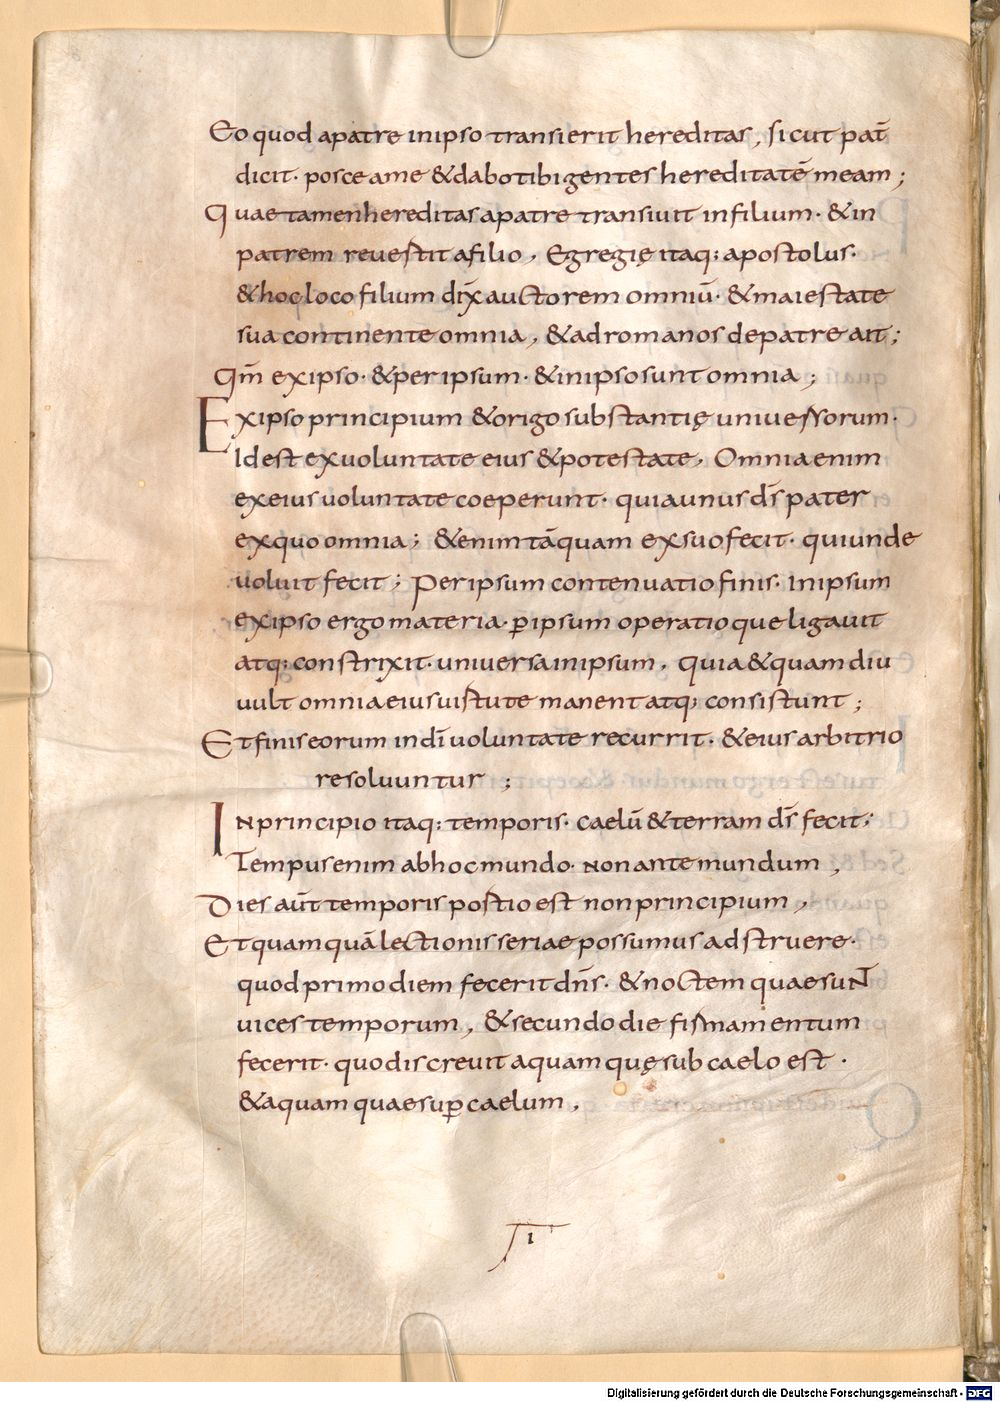 Eo quod apatre inipso transierit hereditas, sicut pat̄
dicit· posceame &dabotibigentes hereditatē meam;
Quaetamenhereditas apatre transiuit infilium· &in
patrem reuestit afilio, Egregię itaq; apostolus·
&hoc loco filium dix̄ auctorem omniū· &maiestate
sua continente omnia, &adromanos depatre ait;
Qm̄ exipso· &per ipsum· &inipso sunt omnia;
Exipso principium &origo substantię uniuersorum·
Id est exuoluntate eius &potestate, Omnia enim
exeius uoluntate coeperunt· quia unus ds̄ pater
exquo omnia; &enim tāquam exsuo fecit· qui unde
uoluit fecit; Per ipsum contenuatio finis· In ipsum
exipso ergo materia· p̄ ipsum operatio que ligauit
atq; constrixit· uniuersa in ipsum, quia &quam diu
uult omnia eius uirtute manent atq; consistunt;
Et finis eorum in dī uoluntate recurrit· &eius arbitrio
resoluuntur;
IN principio itaq; temporis· caelū &terram ds̄ fecit;
Tempus enim ab hoc mundo· Non ante mundum,
Dies aūt temporis postio est non principium,
Et quam quā lectionis seriae possumus adstruere·
quod primo diem fecerit dn̄s· &noctem quae sunt
uices temporum, &secundo die firmamentum
fecerit· quo discreuit aquam quę sub caelo est·
&aquam quae sup̄ caelum,
I
Digitalisierung gefördert durch die Deutsche Forschungsgemeinschaft - DFG